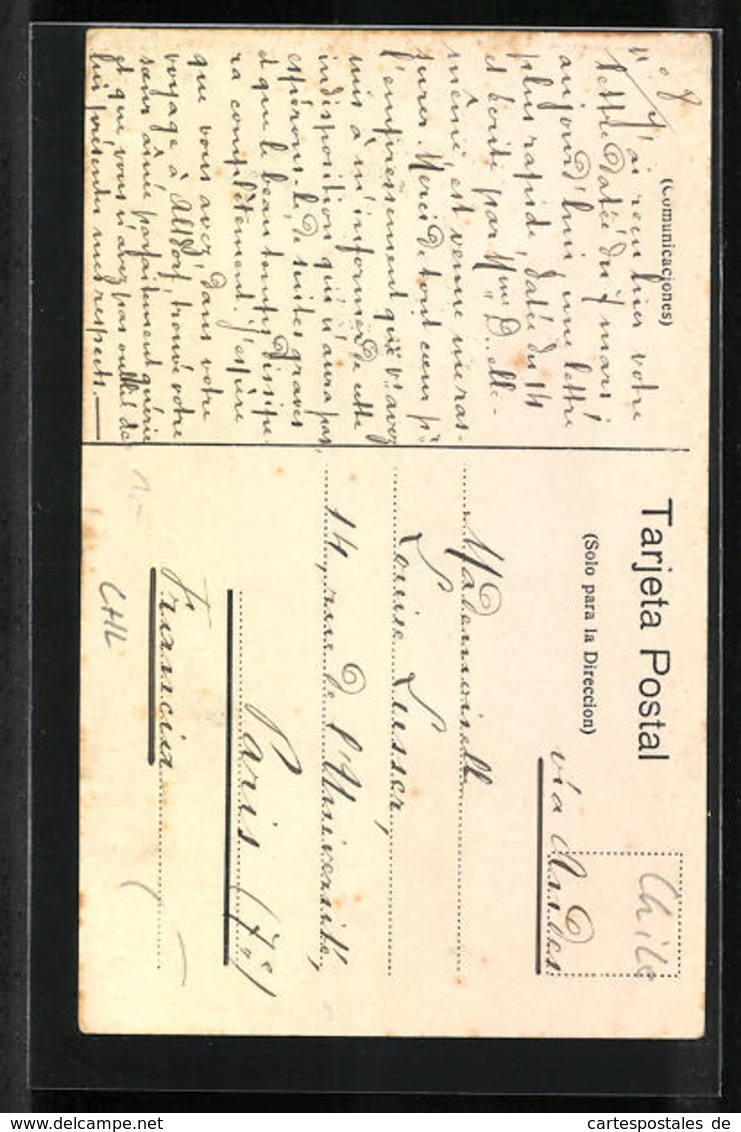 Tarjeta Postal
(Comunicaciones)
(Solo para la Direccion)
n° 8
J'ai reçu hier votre
lettre datée du 7 mars;
aujourd'hui, une lettre
plus rapide, datée du 14
et écrite par Mme D... elle-
même, est venue me ras-
surer. Merci de tout cœur pr
l'empressement que v. avez
mis à m'informer de cette
indisposition qui n'aura pas,
espérons-le, de suites graves
et que le beau temps dissipe-
ra complètement. J'espère
que vous avez, dans votre
voyage à Altdorf, trouvé votre
sœur aînée parfaitement guérie
et que vous n'avez pas oublié de
lui présenter mes respects.—
via Andes
Chile
Mademoiselle
Louise Lusser,
14, rue de l'Université,
Paris (7e)
Francia
1.-
CHL
www.cartespostales.com
cartespostales de